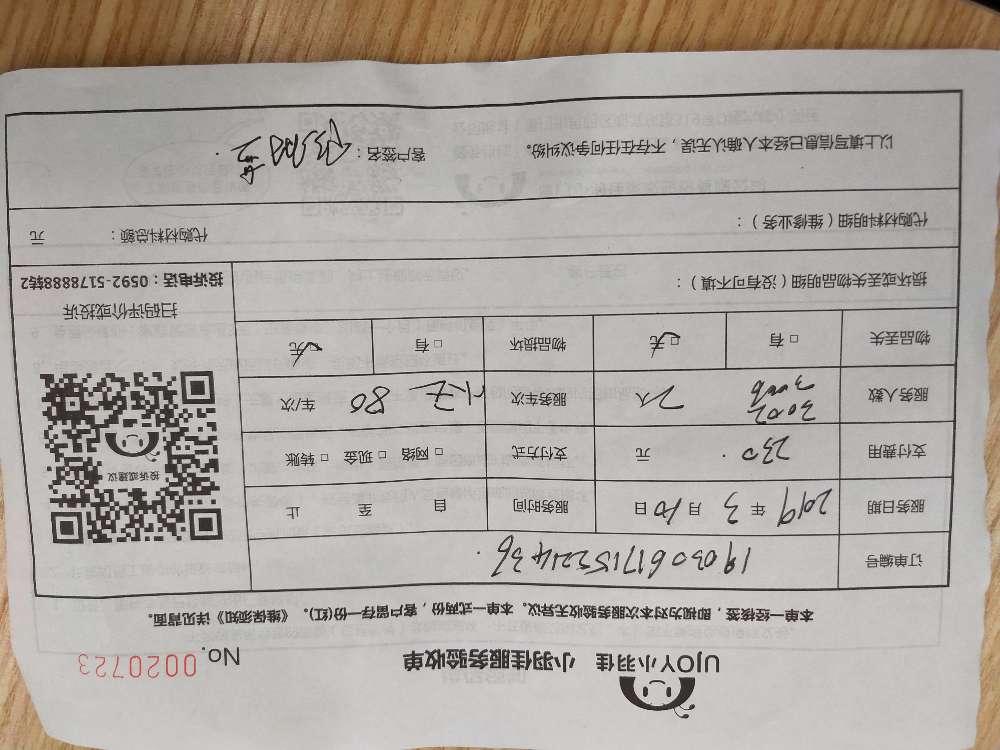 UJOY小羽佳 小羽佳服务验收单 No. 0020723
本单一经接签，即视为对本次服务验收无异议。本单一式两份，客户留存一份(红)。《维保须知》详见背面。
订单编号 190306171552214 36
服务日期 2019 年 3 月 10 日 服务时间 自 至 止
支付费用 230 元 支付方式 □ 网络 □ 现金 □ 转账
服务人数 2人 服务车次 80 车/次
物品丢失 □ 有 □ 无 物品损坏 □ 有 □ 无
投诉或建议
扫码评价或投诉
投诉电话：0592-5178888转2
损坏或丢失物品明细（没有可不填）：
代购材料明细（维修业务）： 代购材料总额： 元
以上填写信息已经本人确认无误，不存在任何争议纠纷。 客户签名：